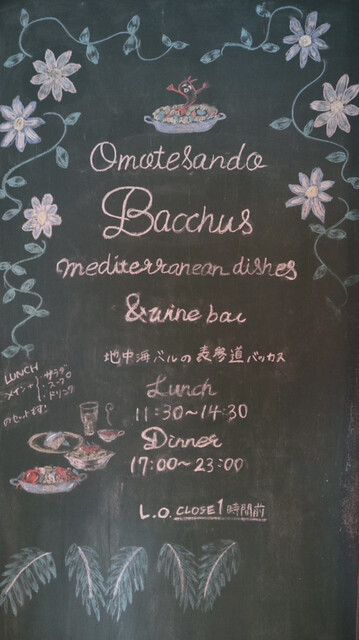 Omotesando
Bacchus
mediterranean dishes
& wine bar
地中海バルの表参道バッカス
LUNCH
メイン+{・サラダ
・スープ
・ドリンク
のセットです!
Lunch
11:30~14:30
Dinner
17:00~23:00
L.O. CLOSE 1時間前